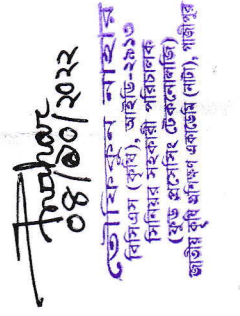 Tnahar
08/10/2022
তৌফিকুন নাহার
বিসিএস (কৃষি), আইডি-২৯১৩
সিনিয়র সহকারী পরিচালক
(ফুড প্রসেসিং টেকনোলজি)
জাতীয় কৃষি প্রশিক্ষণ একাডেমি (নাটা), গাজীপুর